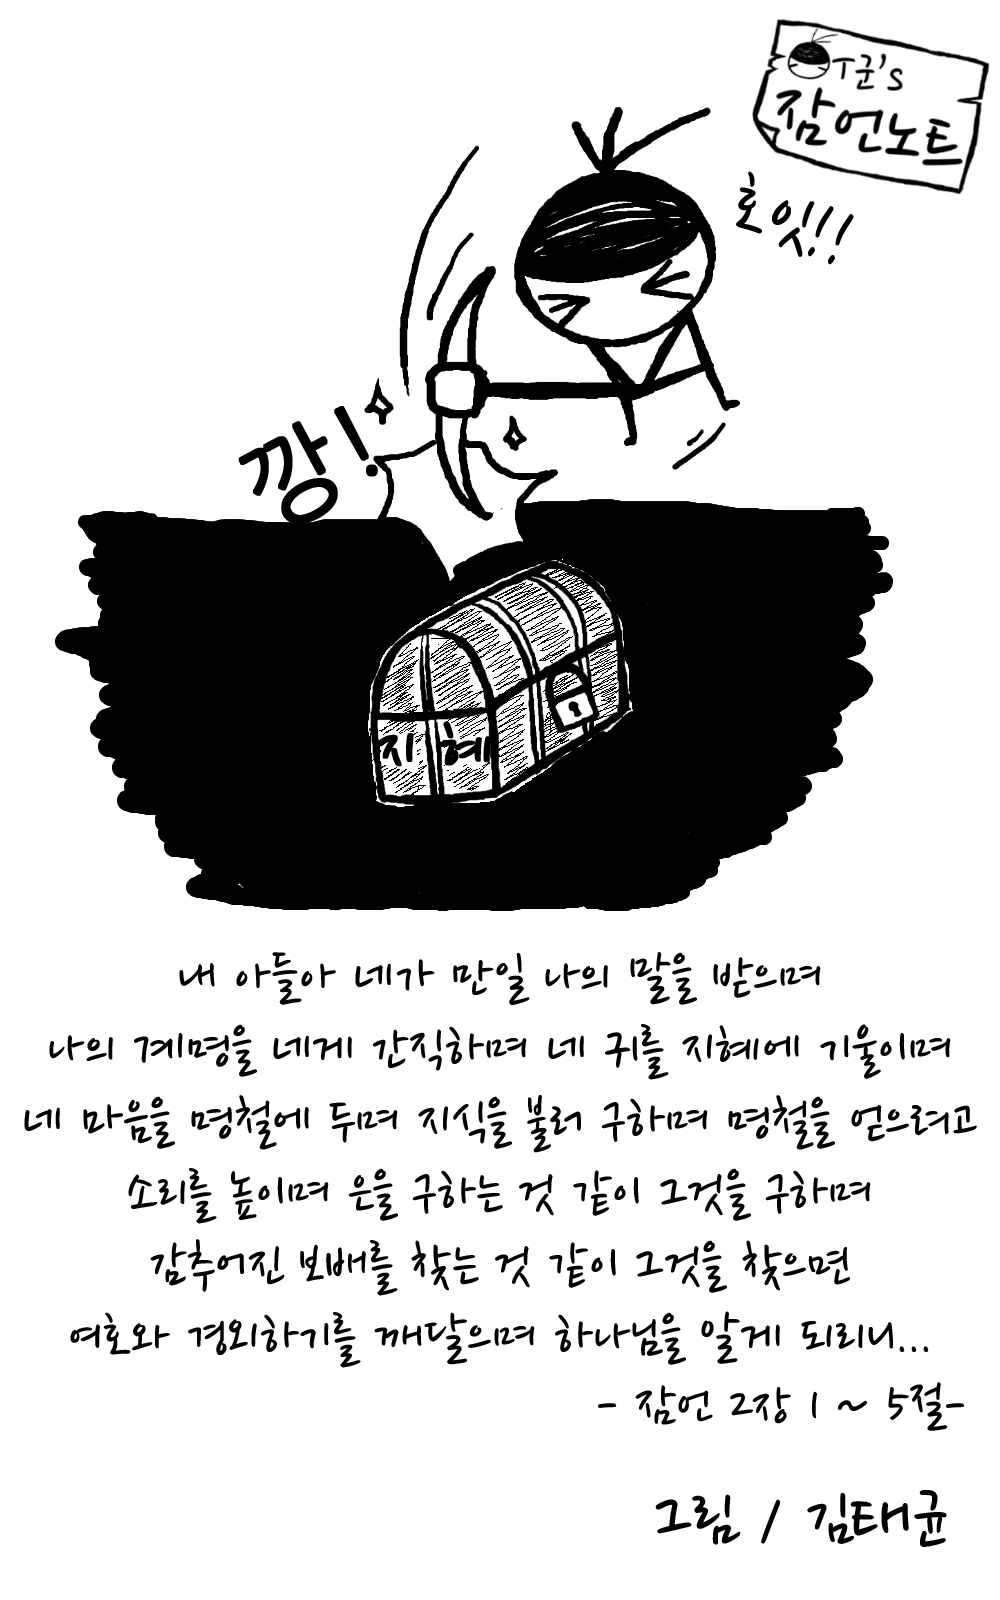 T군's
잠언노트
호잇!!
깡!
지혜
내 아들아 네가 만일 나의 말을 받으며
나의 계명을 네게 간직하며 네 귀를 지혜에 기울이며
네 마음을 명철에 두며 지식을 불러 구하며 명철을 얻으려고
소리를 높이며 은을 구하는 것 같이 그것을 구하며
감추어진 보배를 찾는 것 같이 그것을 찾으면
여호와 경외하기를 깨달으며 하나님을 알게 되리니...
- 잠언 2장 1 ~ 5절-
그림 / 김태균